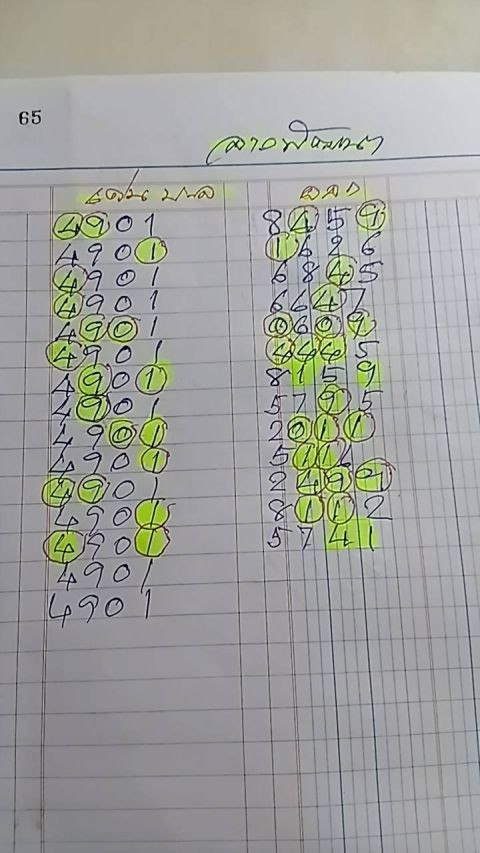 65
ลาวพัฒนา
เด่น บน ออก
4901 8459
4901 1626
4901 6845
4901 6647
4901 0609
4901 4445
4901 8159
4901 5795
4901 2011
4901 5114
4901 2499
4901 8112
4901 5741
4901
4901